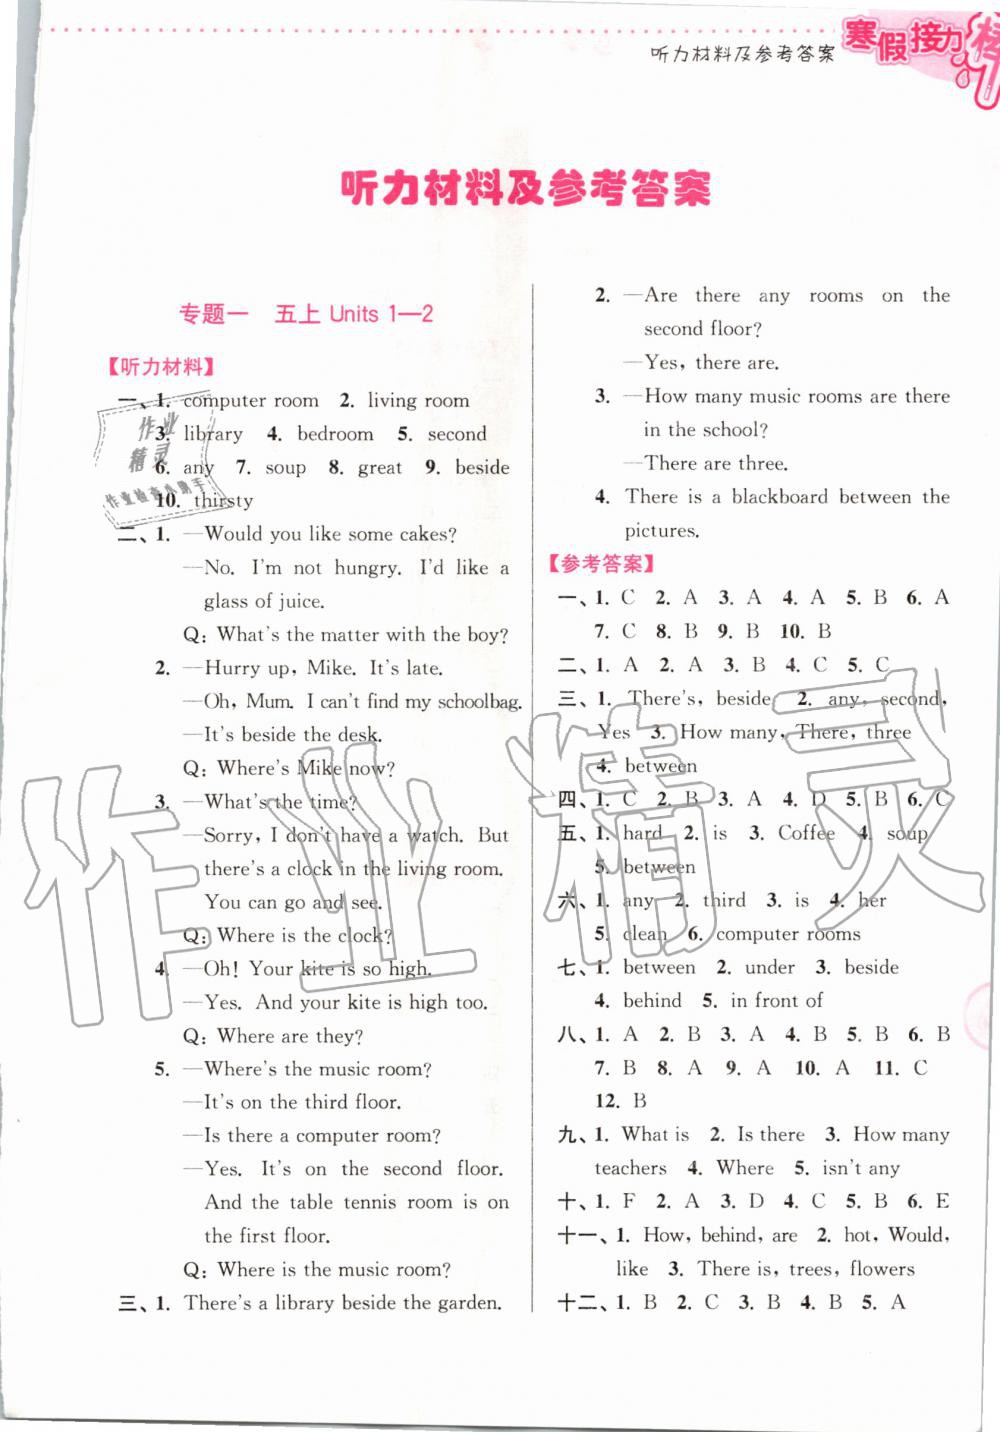 听力材料及参考答案
寒假接力棒
听力材料及参考答案
专题一 五上 Units 1—2
【听力材料】
一、1. computer room 2. living room
3. library 4. bedroom 5. second
6. any 7. soup 8. great 9. beside
10. thirsty
二、1. —Would you like some cakes?
—No. I'm not hungry. I'd like a
glass of juice.
Q: What's the matter with the boy?
2. —Hurry up, Mike. It's late.
—Oh, Mum. I can't find my schoolbag.
—It's beside the desk.
Q: Where's Mike now?
3. —What's the time?
—Sorry, I don't have a watch. But
there's a clock in the living room.
You can go and see.
Q: Where is the clock?
4. —Oh! Your kite is so high.
—Yes. And your kite is high too.
Q: Where are they?
5. —Where's the music room?
—It's on the third floor.
—Is there a computer room?
—Yes. It's on the second floor.
And the table tennis room is on
the first floor.
Q: Where is the music room?
三、1. There's a library beside the garden.
2. —Are there any rooms on the
second floor?
—Yes, there are.
3. —How many music rooms are there
in the school?
—There are three.
4. There is a blackboard between the
pictures.
【参考答案】
一、1. C 2. A 3. A 4. A 5. B 6. A
7. C 8. B 9. B 10. B
二、1. A 2. A 3. B 4. C 5. C
三、1. There's, beside 2. any, second,
Yes 3. How many, There, three
4. between
四、1. C 2. B 3. A 4. D 5. B 6. C
五、1. hard 2. is 3. Coffee 4. soup
5. between
六、1. any 2. third 3. is 4. her
5. clean 6. computer rooms
七、1. between 2. under 3. beside
4. behind 5. in front of
八、1. A 2. B 3. A 4. B 5. B 6. B
7. B 8. A 9. A 10. A 11. C
12. B
九、1. What is 2. Is there 3. How many
teachers 4. Where 5. isn't any
十、1. F 2. A 3. D 4. C 5. B 6. E
十一、1. How, behind, are 2. hot, Would,
like 3. There is, trees, flowers
十二、1. B 2. C 3. B 4. B 5. A
作业精灵
作业
精灵
作业检查小助手